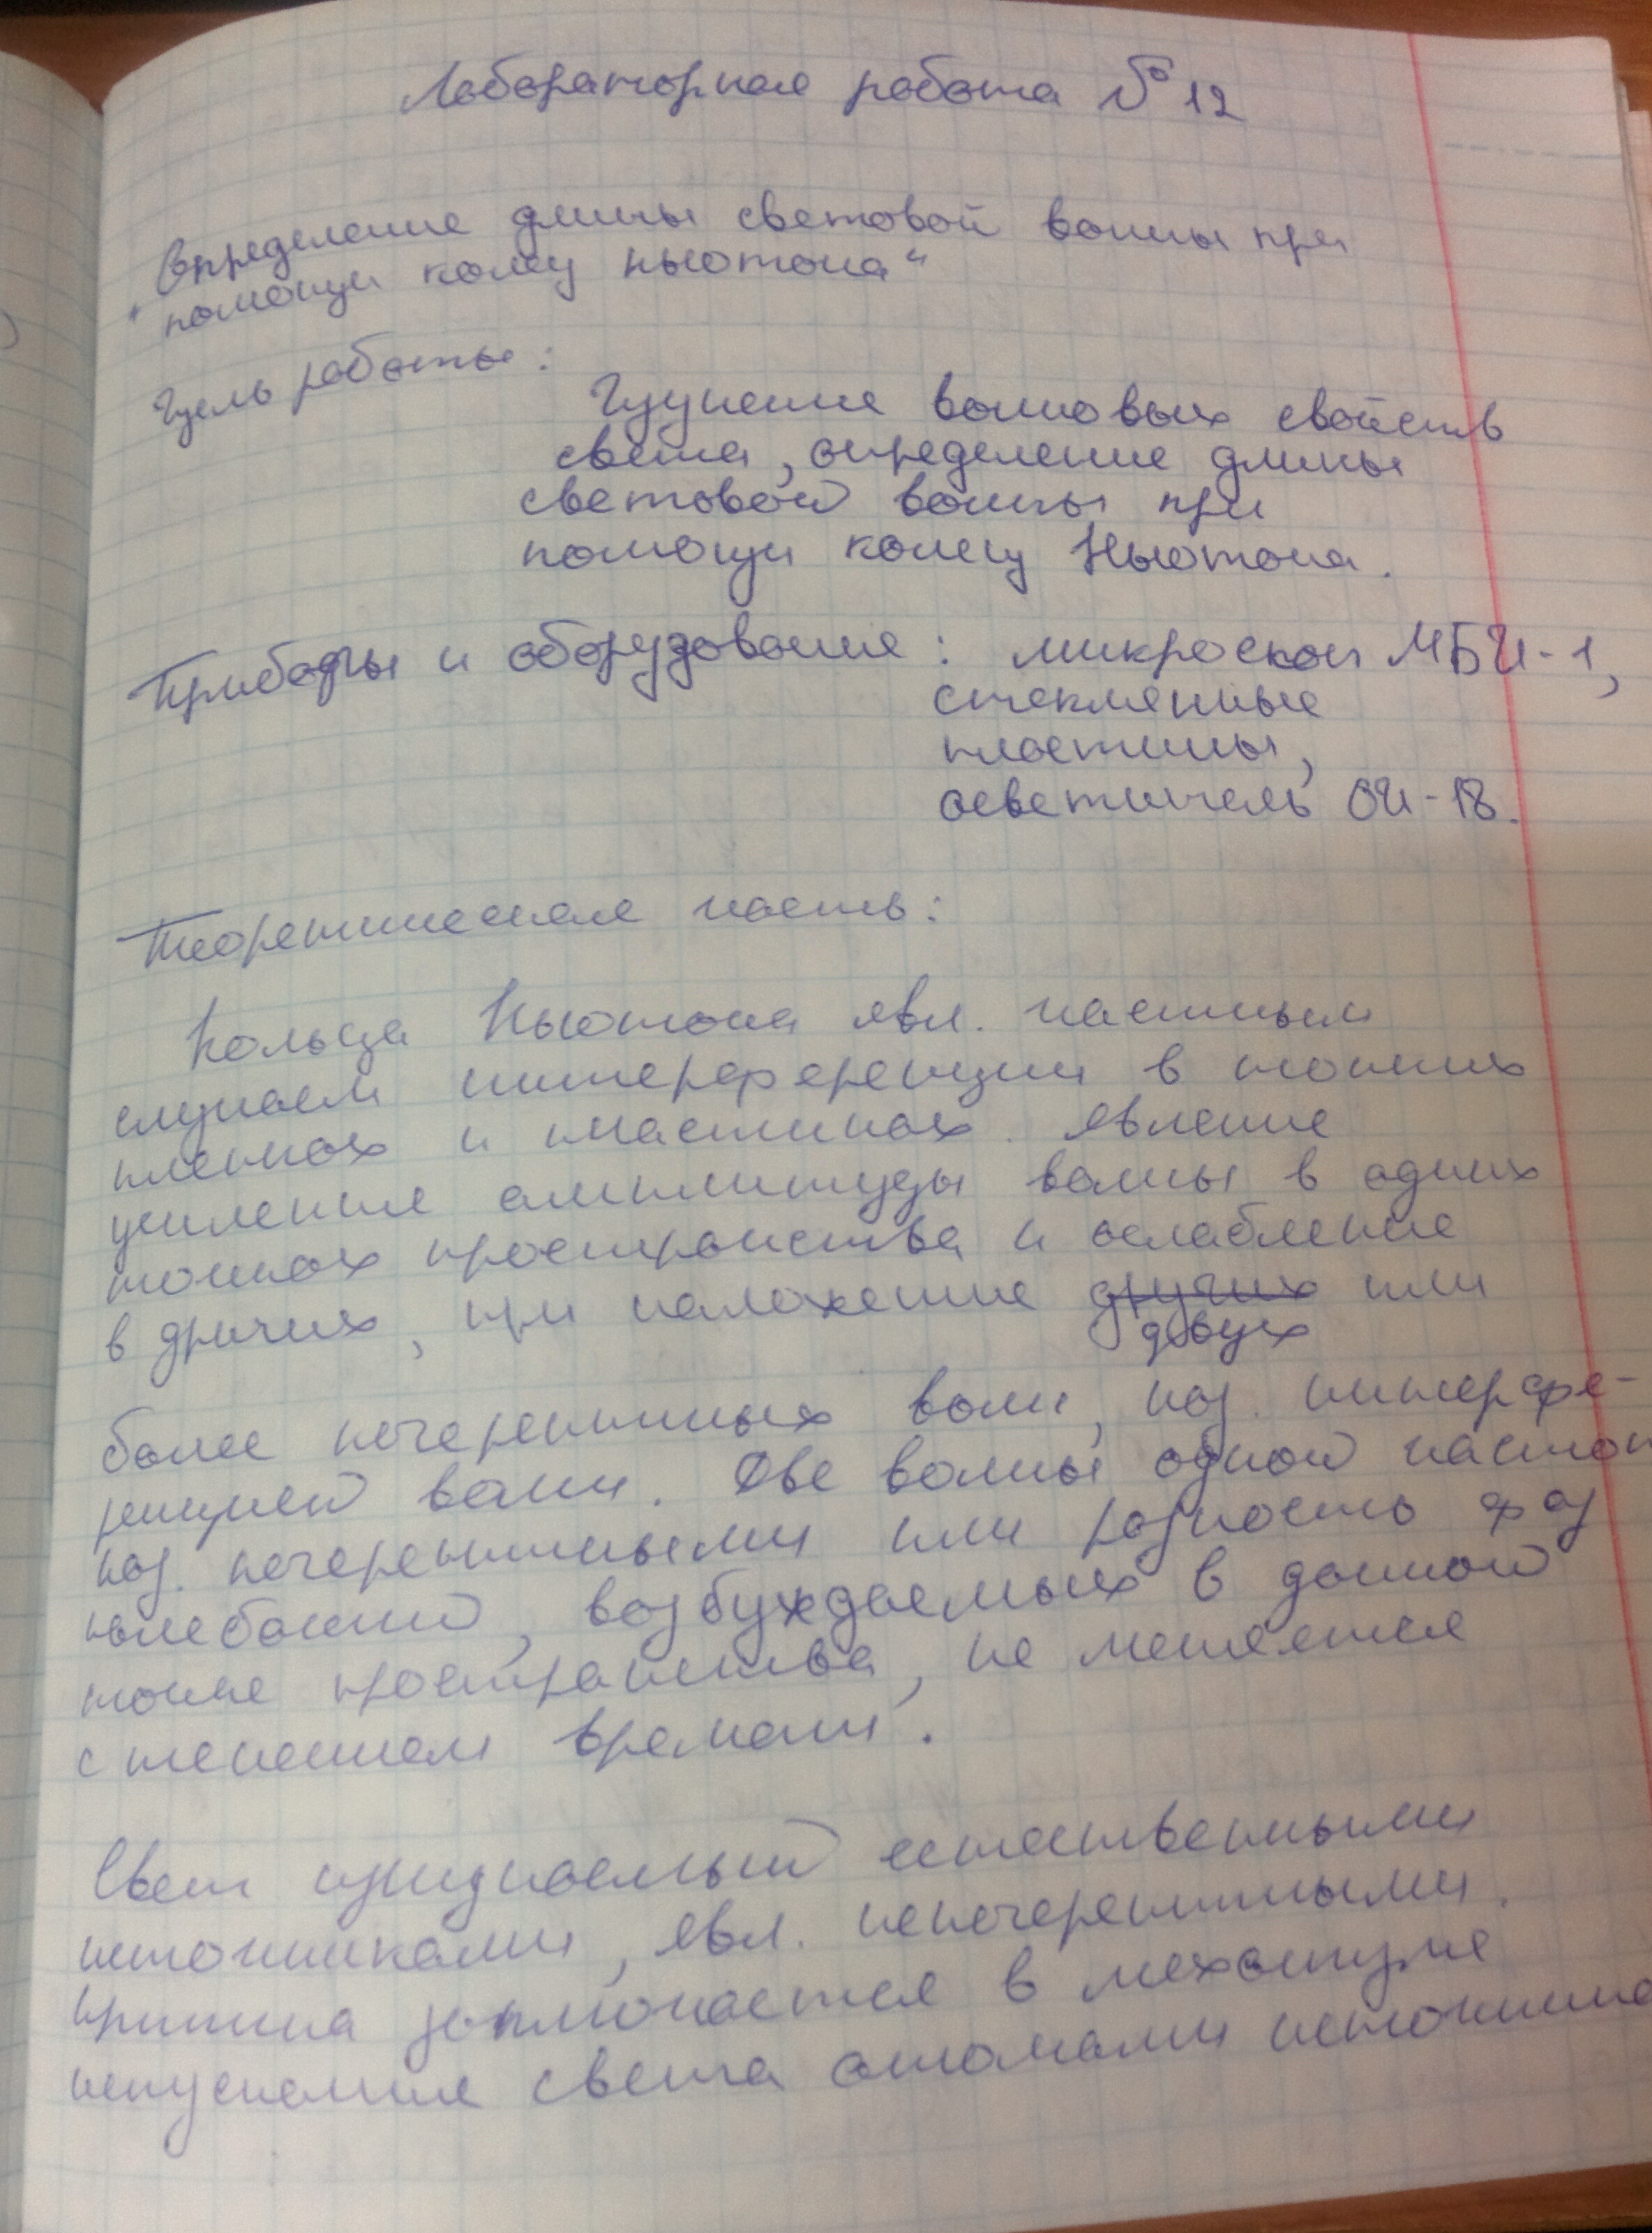 Лабораторная работа № 12
Определение длины световой волны при
"помощи колец ньютона"
Цель работы:
Изучение волновых свойств
света, определение длины
световой волны при
помощи колец Ньютона.
Приборы и оборудование: микроскоп МБИ-1,
стеклянные
пластины,
осветитель ОИ-18.
Теоретическая часть:
Кольца Ньютона явл. частным
случаем интерференции в тонких
пленках и пластинах. Явление
усиления амплитуды волны в одних
точках пространства и ослабление
в других, при наложение других или
двух
более когерентных волн, наз. интерфе-
ренцией волн. Две волны одной частоты
наз. когерентными или разность фаз
колебаний, возбуждаемых в данной
точке пространства, не меняется
с течением времени.
Свет излучаемый естественными
источниками, явл. некогерентными.
Причина заключается в механизме
испускания света атомами источника